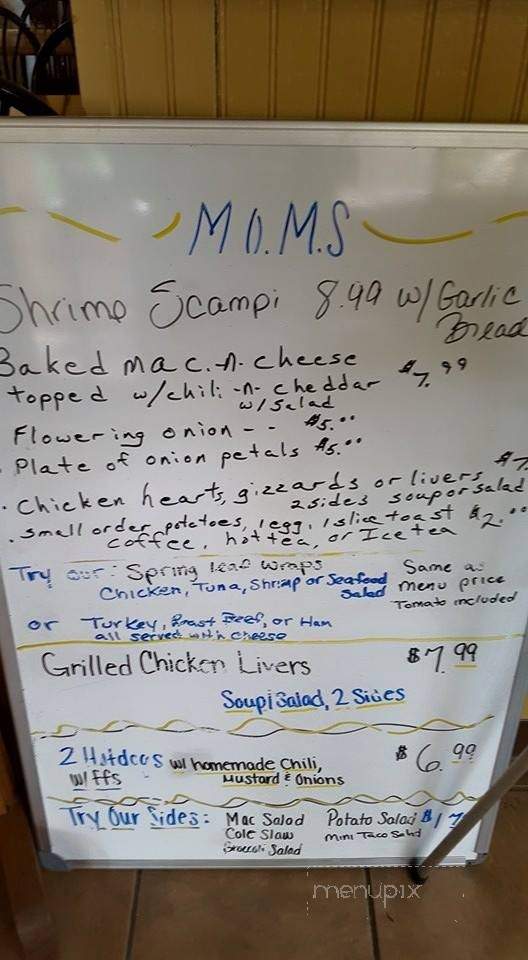 M.O.M.S
Shrimp Scampi 8.99 w/Garlic
Bread
Baked mac.-n-cheese
topped w/chili-n-cheddar $7.99
w/salad
Flowering onion -- $5.00
Plate of onion petals $5.00
. Chicken hearts, gizzards or livers $7
2 sides soup or salad
. small order potatoes, 1 egg, 1 slice toast $2.00
coffee, hot tea, or Ice tea
Try our: Spring Leaf Wraps Same as
Chicken, Tuna, Shrimp or Seafood menu price
Salad Tomato included
or Turkey, Roast Beef, or Ham
all served with cheese
Grilled Chicken Livers $7.99
Soup/Salad, 2 Sides
2 Hotdogs w/ homemade Chili, $6.99
w/ffs Mustard & Onions
Try Our Sides: Mac Salad Potato Salad $1.7
Cole Slaw Mini Taco Salad
Broccoli Salad
menupix